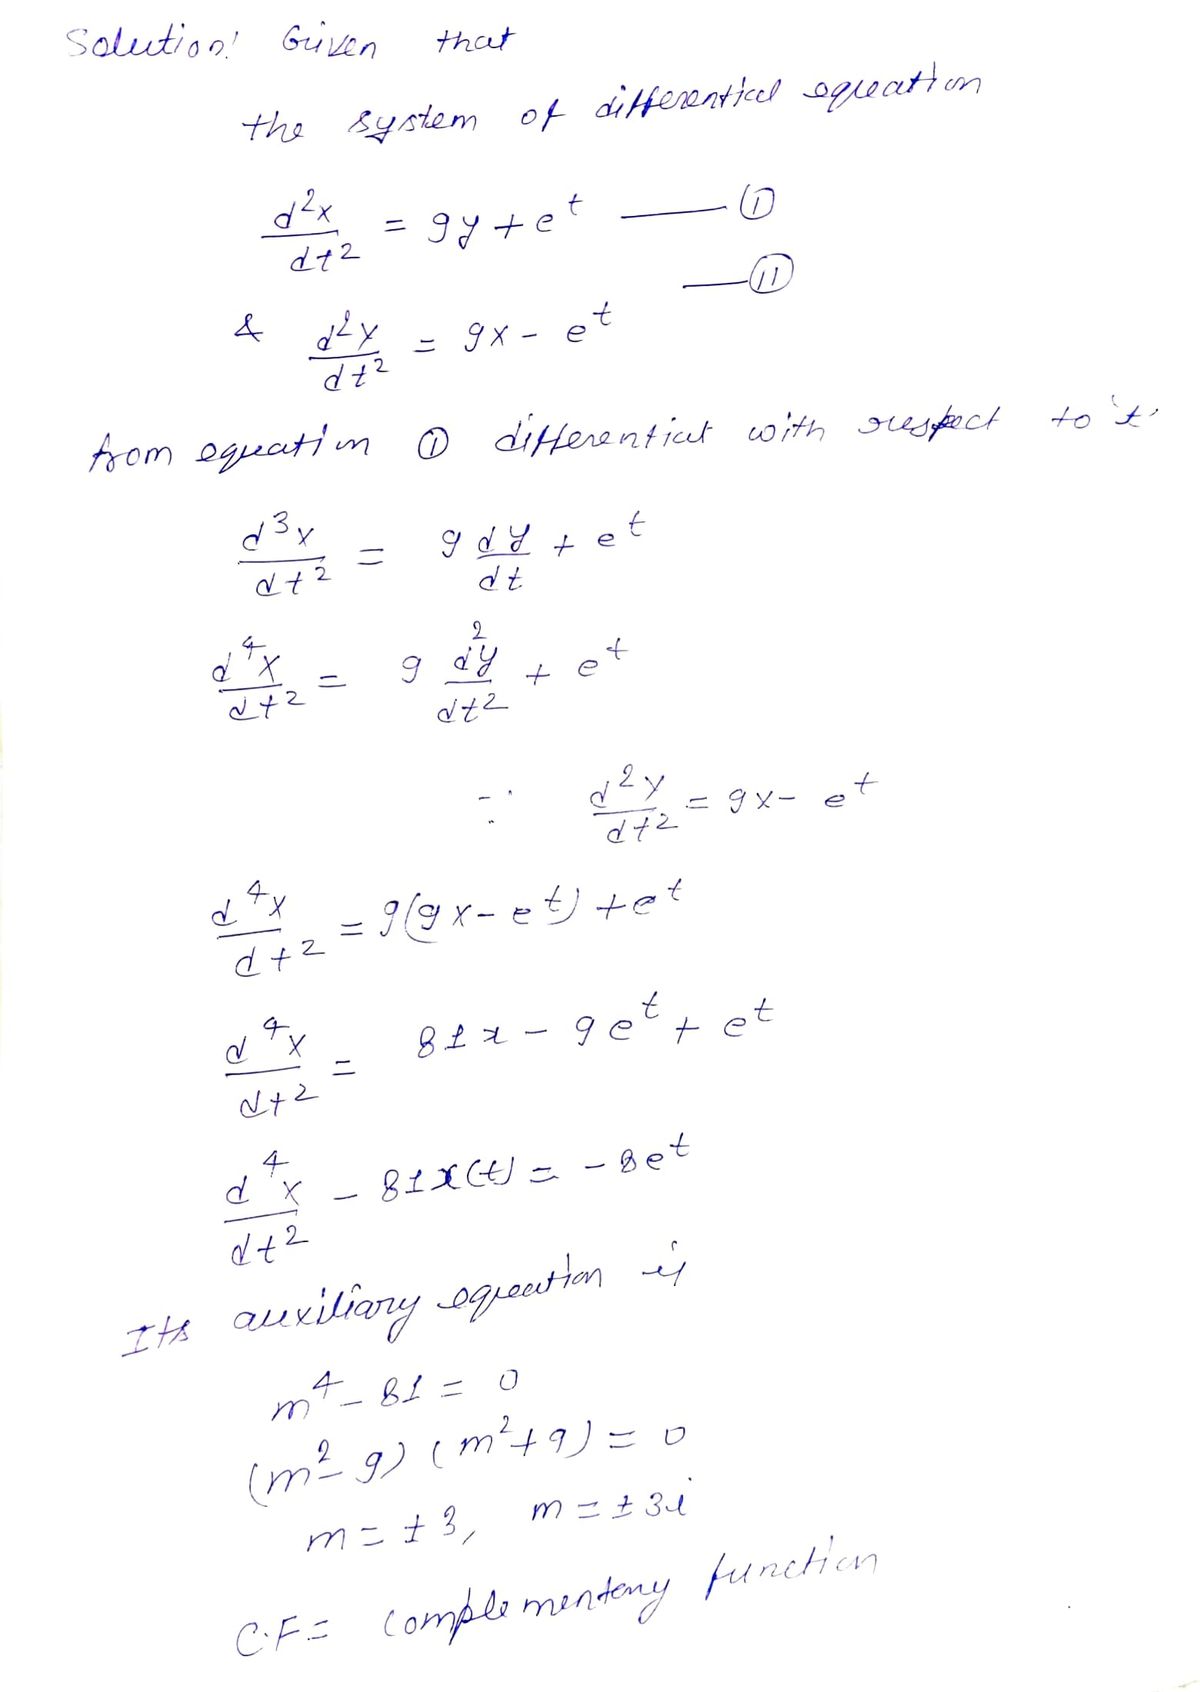 Solution! Given that
the system of differential equation
d²x/dt² = 9y + e^t —— (I)
—— (II)
& d²y/dt² = 9x - e^t
from equation (I) differentiat with respect to 't'
d³x/dt² = 9 dy/dt + e^t
d⁴x/dt² = 9 d²y/dt² + e^t
∵ d²y/dt² = 9x - e^t
d⁴x/dt² = 9(9x - e^t) + e^t
d⁴x/dt² = 81x - 9e^t + e^t
d⁴x/dt² - 81x(t) = -8e^t
Its auxiliary equation is
m⁴ - 81 = 0
(m² - 9) (m² + 9) = 0
m = ±3, m = ±3i
C.F = complementary function